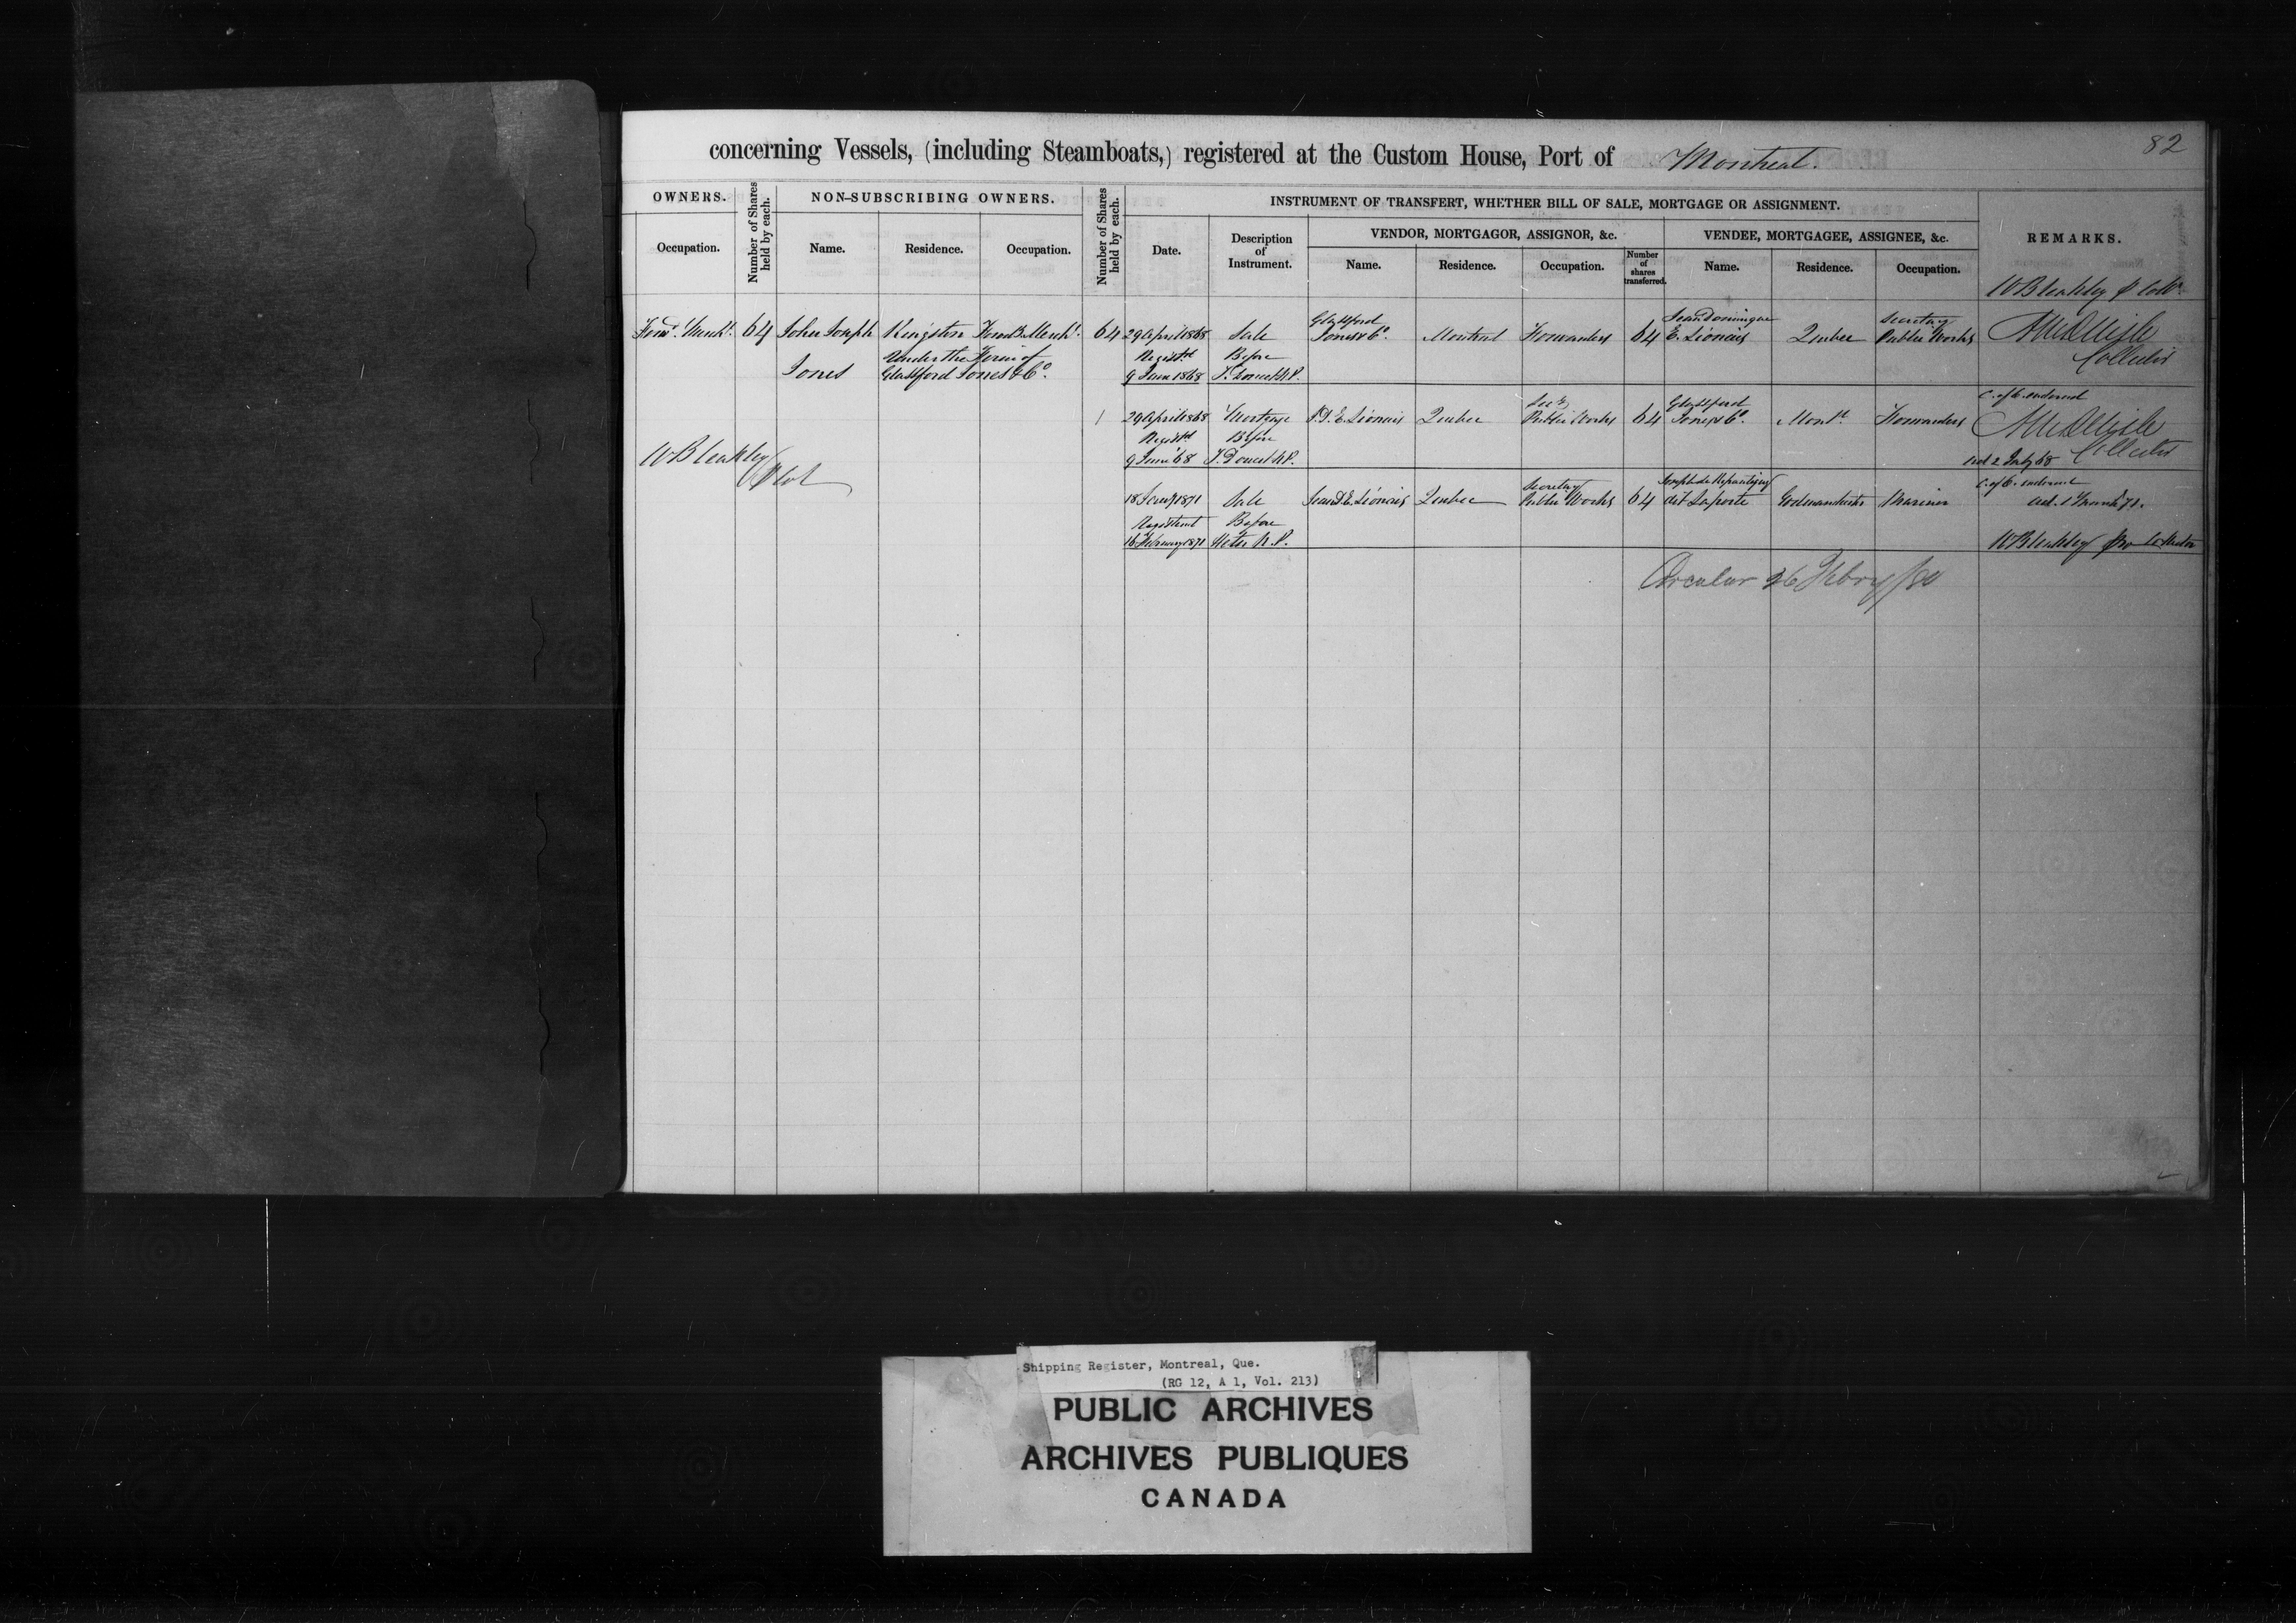 82
concerning Vessels, (including Steamboats,) registered at the Custom House, Port of Montreal.
OWNERS.
Occupation.
Number of Shares held by each.
NON-SUBSCRIBING OWNERS.
Name.
Residence.
Occupation.
Number of Shares held by each.
INSTRUMENT OF TRANSFERT, WHETHER BILL OF SALE, MORTGAGE OR ASSIGNMENT.
Date.
Description of Instrument.
VENDOR, MORTGAGOR, ASSIGNOR, &c.
Name.
Residence.
Occupation.
Number of shares transferred.
VENDEE, MORTGAGEE, ASSIGNEE, &c.
Name.
Residence.
Occupation.
REMARKS.
W Bleakley
Forwd. Mercht. 64 John Joseph Kingston Forwd. Mercht. 64 29 April 1868 Sale Glassford Jones & Co. Montreal Forwarders 64 Jean Dominique E. Lionais Quebec Secretary Public Works
Jones
Under the Firm of
Glassford Jones & Co.
Registd. Before
9 June 1868 N.P.
Collector
1 29 April 1868 Mortgage J.D.E. Lionais Quebec Secy Public Works 64 Glassford Jones & Co. Mont. Forwarders
C. of O. endorsed
Registd. Before
9 June '68 J. Doucet N.P.
Collector
2 July 68
W Bleakley
18 Jany 1871 Sale Jean D.E. Lionais Quebec Secretary Public Works 64 Joseph dit Laporte Mariner
endorsed
Registered Before
16 February 1871 N.P.
W Bleakley pro Collector
Circular 26 Febry/80
Shipping Register, Montreal, Que.
(RG 12, A 1, Vol. 213)
PUBLIC ARCHIVES
ARCHIVES PUBLIQUES
CANADA